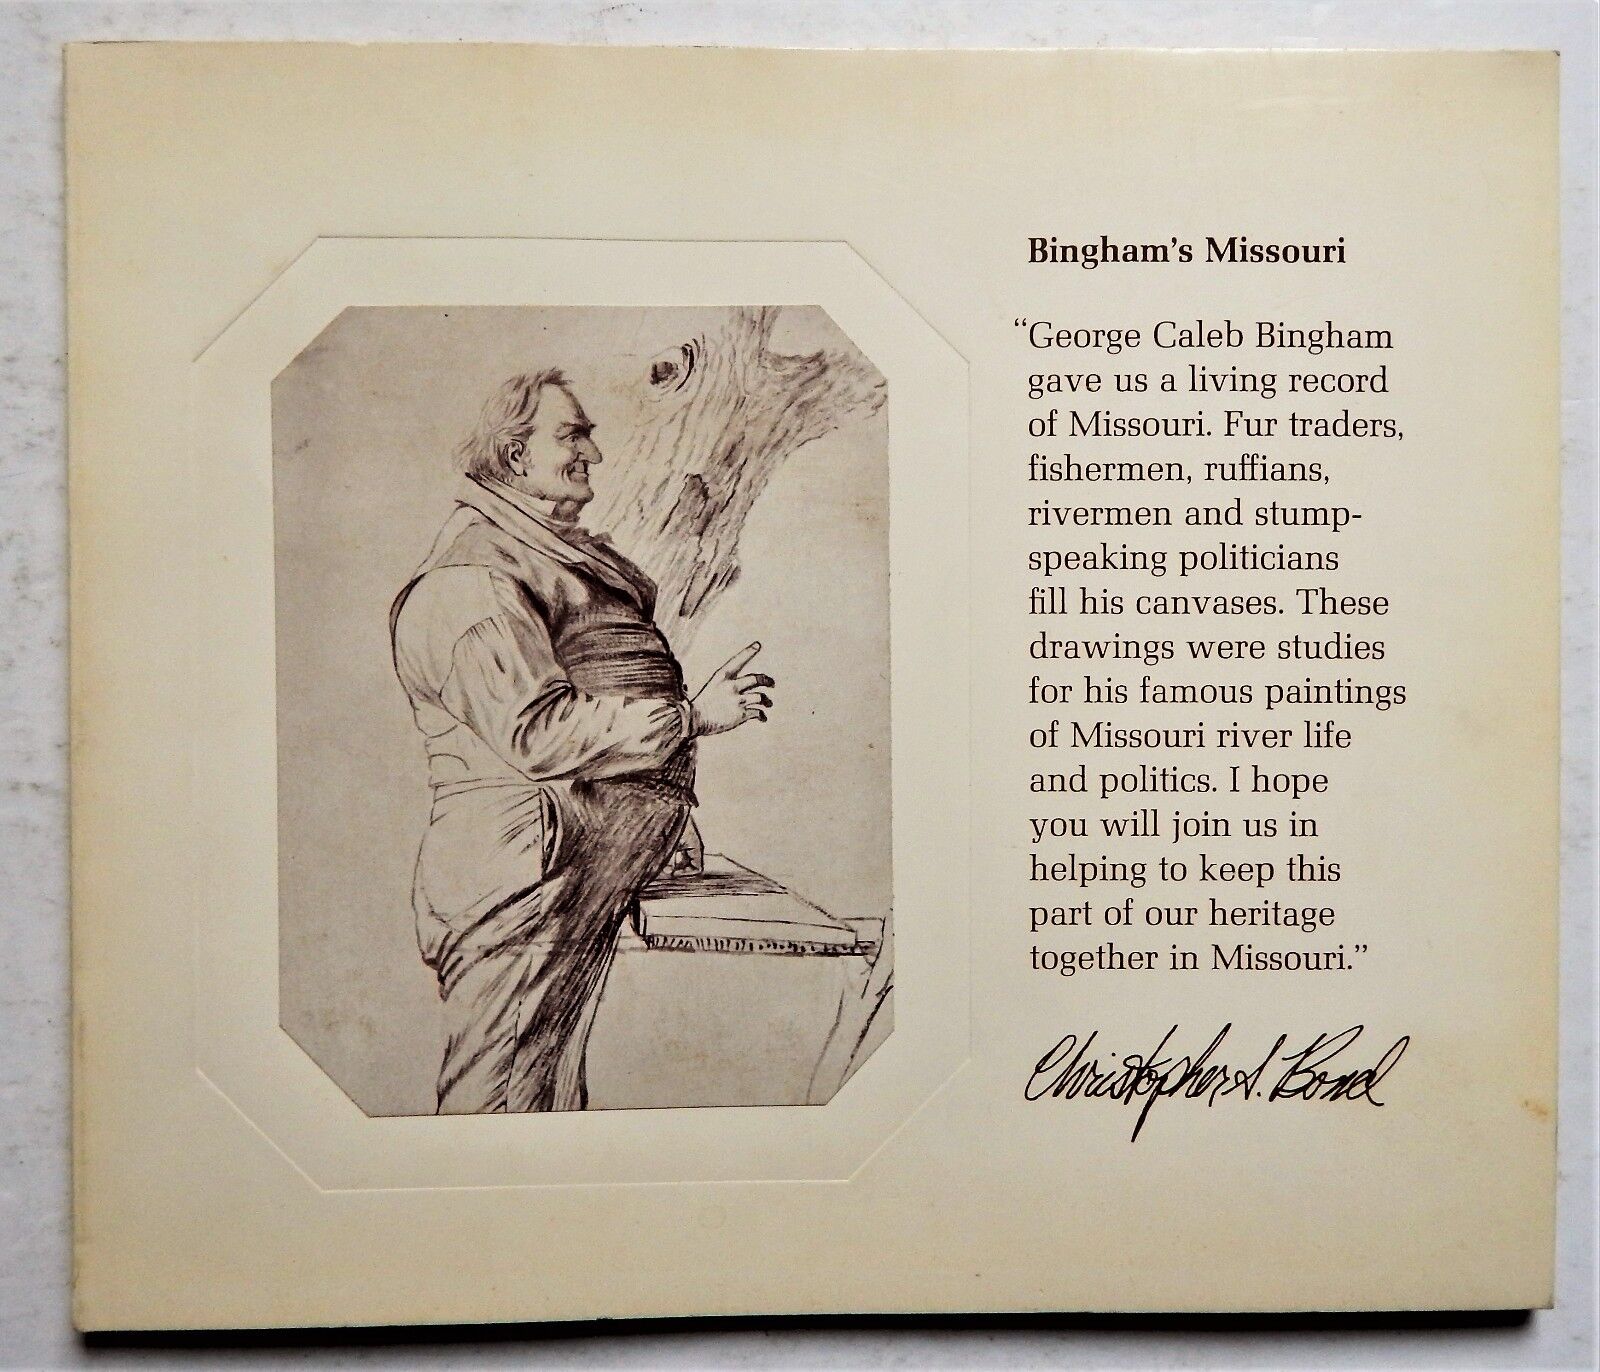 Bingham's Missouri
“George Caleb Bingham
gave us a living record
of Missouri. Fur traders,
fishermen, ruffians,
rivermen and stump-
speaking politicians
fill his canvases. These
drawings were studies
for his famous paintings
of Missouri river life
and politics. I hope
you will join us in
helping to keep this
part of our heritage
together in Missouri.”
Christopher S. Bond